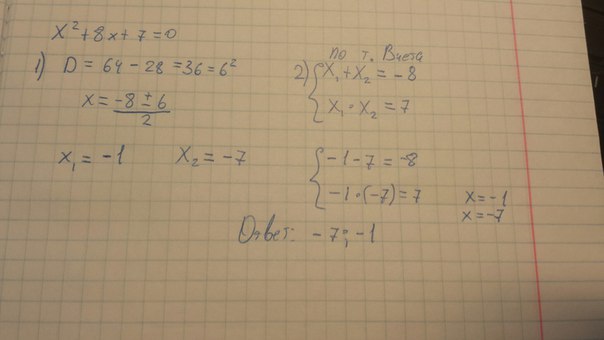 x² + 8x + 7 = 0
1) D = 64 - 28 = 36 = 6²
x = (-8 ± 6)/2
x₁ = -1 x₂ = -7
по т. Виета
2) { x₁ + x₂ = -8
x₁ · x₂ = 7
{ -1 - 7 = -8
-1 · (-7) = 7
x = -1
x = -7
Ответ: -7; -1